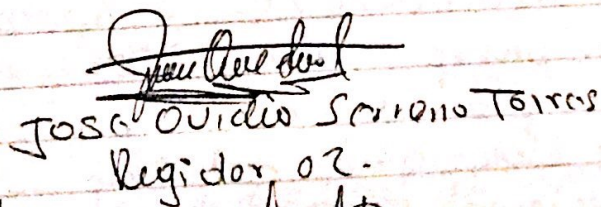 José Ovidio Serrano Torres
Regidor 02.